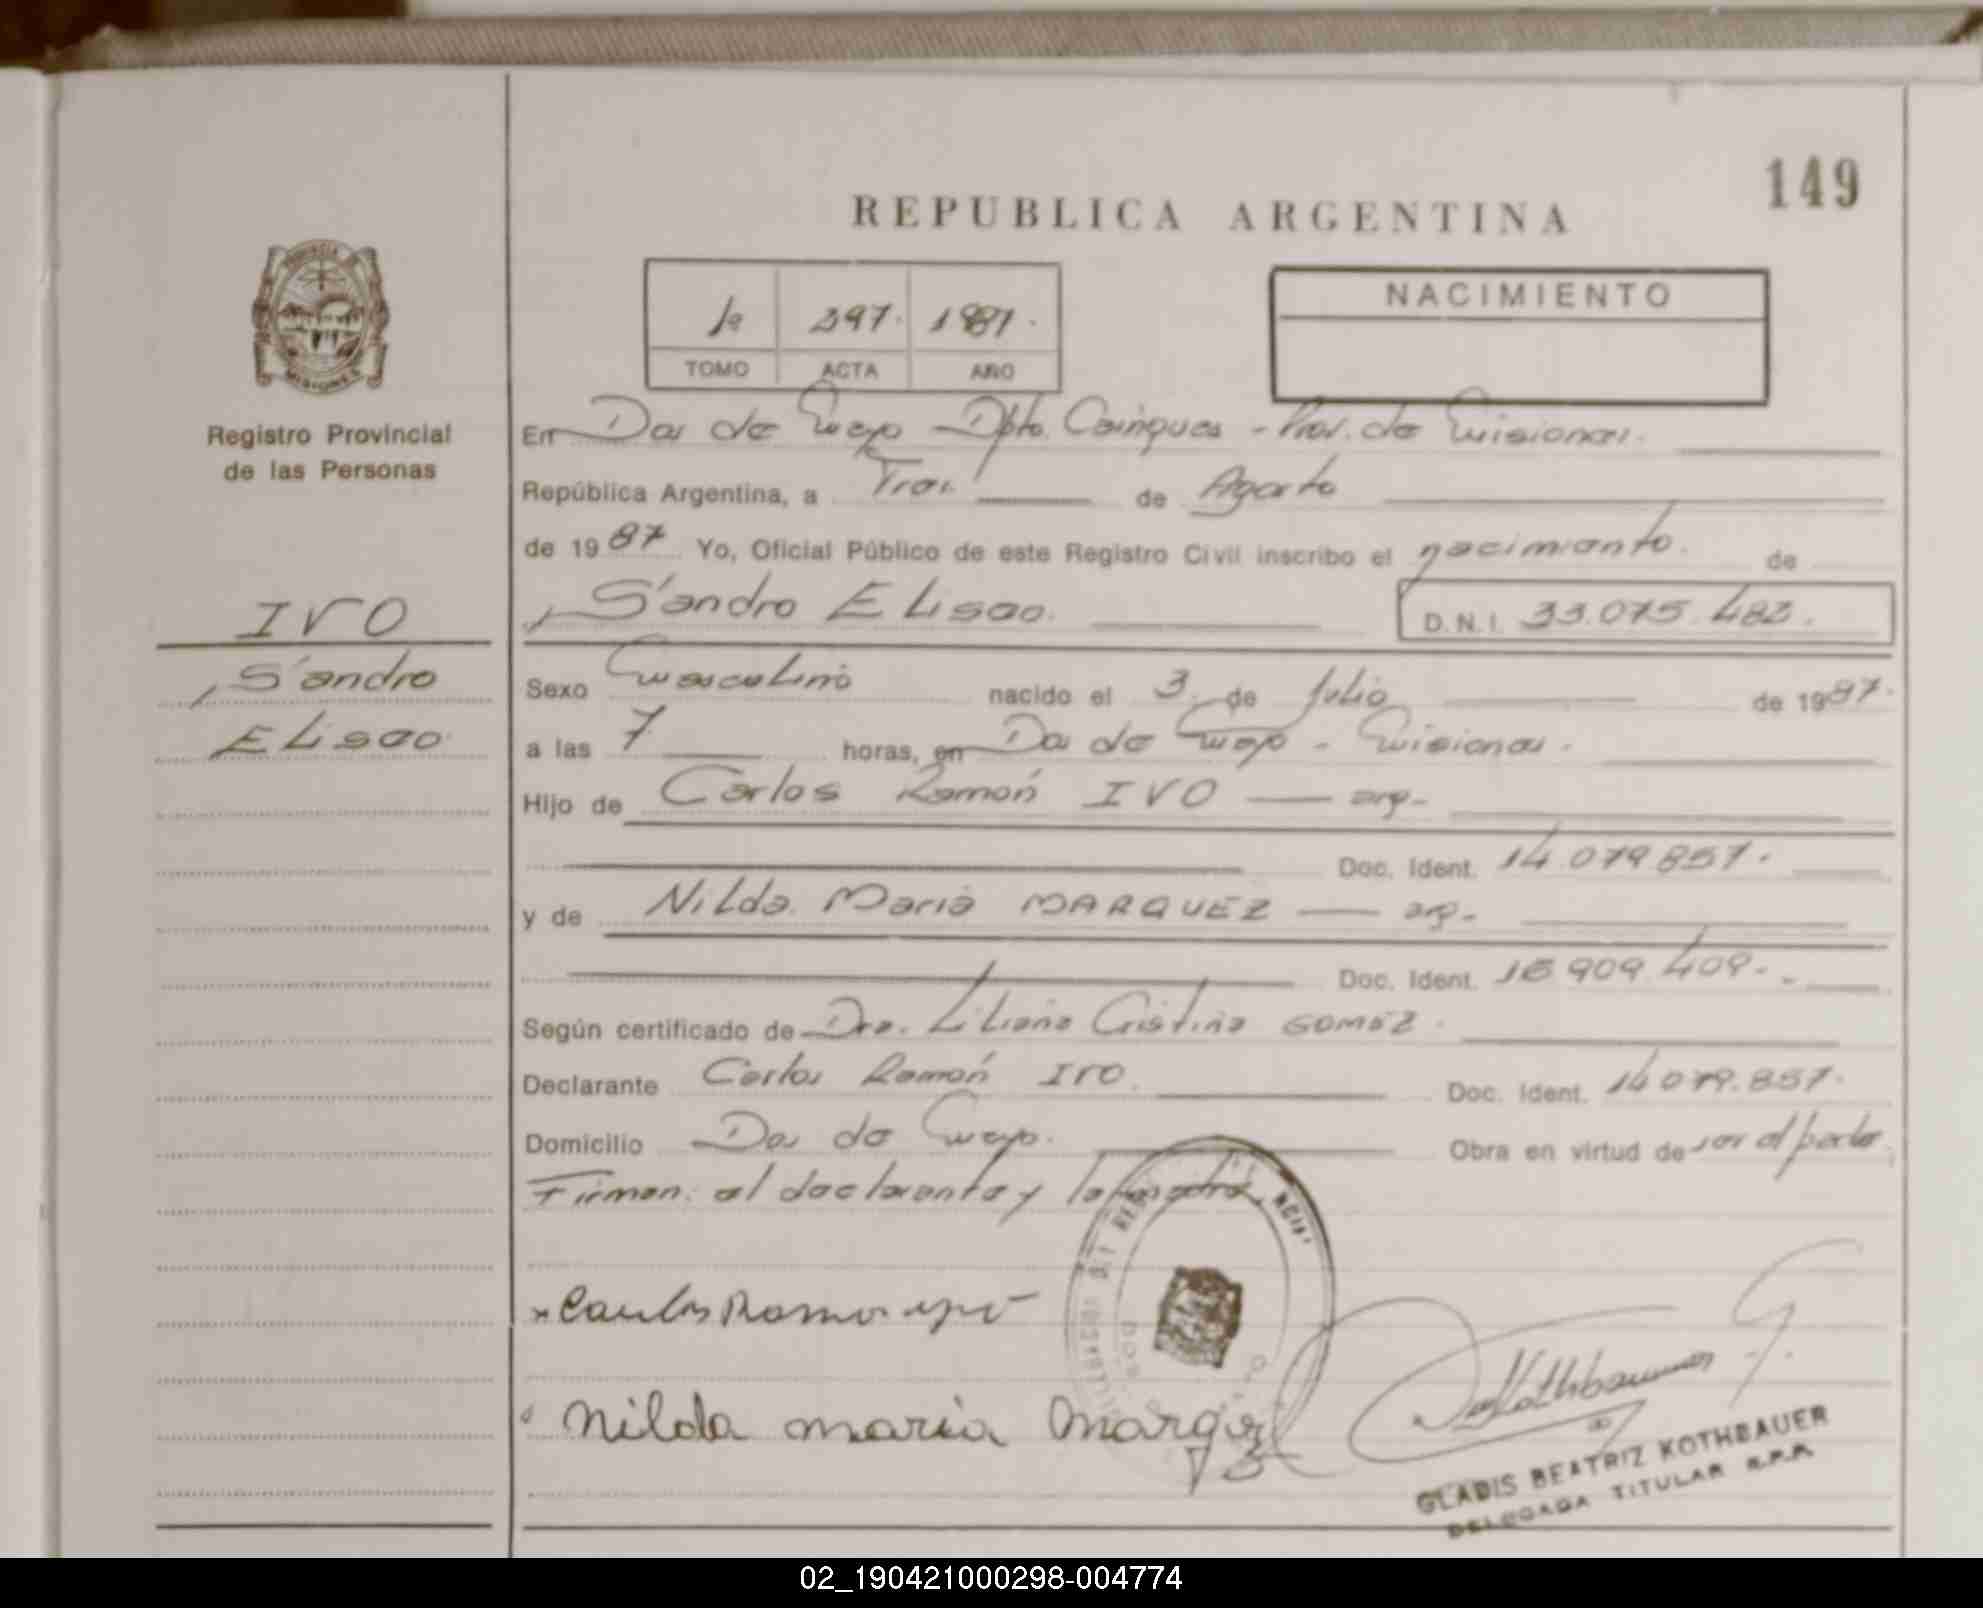 149
REPUBLICA ARGENTINA
PROVINCIA DE
MISIONES
1º 397. 1987.
TOMO ACTA AÑO
NACIMIENTO
Registro Provincial
de las Personas
En Dos de Mayo - Dpto. Cainguas - Prov. de Misiones.
República Argentina, a Tres de Agosto
de 1987 Yo, Oficial Público de este Registro Civil inscribo el nacimiento. de
Sandro Eliseo. D.N.I. 33.075.483.
IVO
Sandro
Eliseo
Sexo Masculino nacido el 3 de Julio de 1987.
a las 7 horas, en Dos de Mayo - Misiones.
Hijo de Carlos Ramón IVO — arg-
Doc. Ident. 14.079.857.
y de Nilda María MARQUEZ — arg-
Doc. Ident. 18.909.409.-
Según certificado de Dra. Liliana Cristina GOMEZ.
Declarante Carlos Ramón IVO. Doc. Ident. 14.079.857.
Domicilio Dos de Mayo. Obra en virtud de ser el padre.
Firman: el declarante y la madre.
Carlos Ramon
Nilda maria Marquez
Kothbauer
GLADIS BEATRIZ KOTHBAUER
DELEGADA TITULAR R.P.P.
02_190421000298-004774